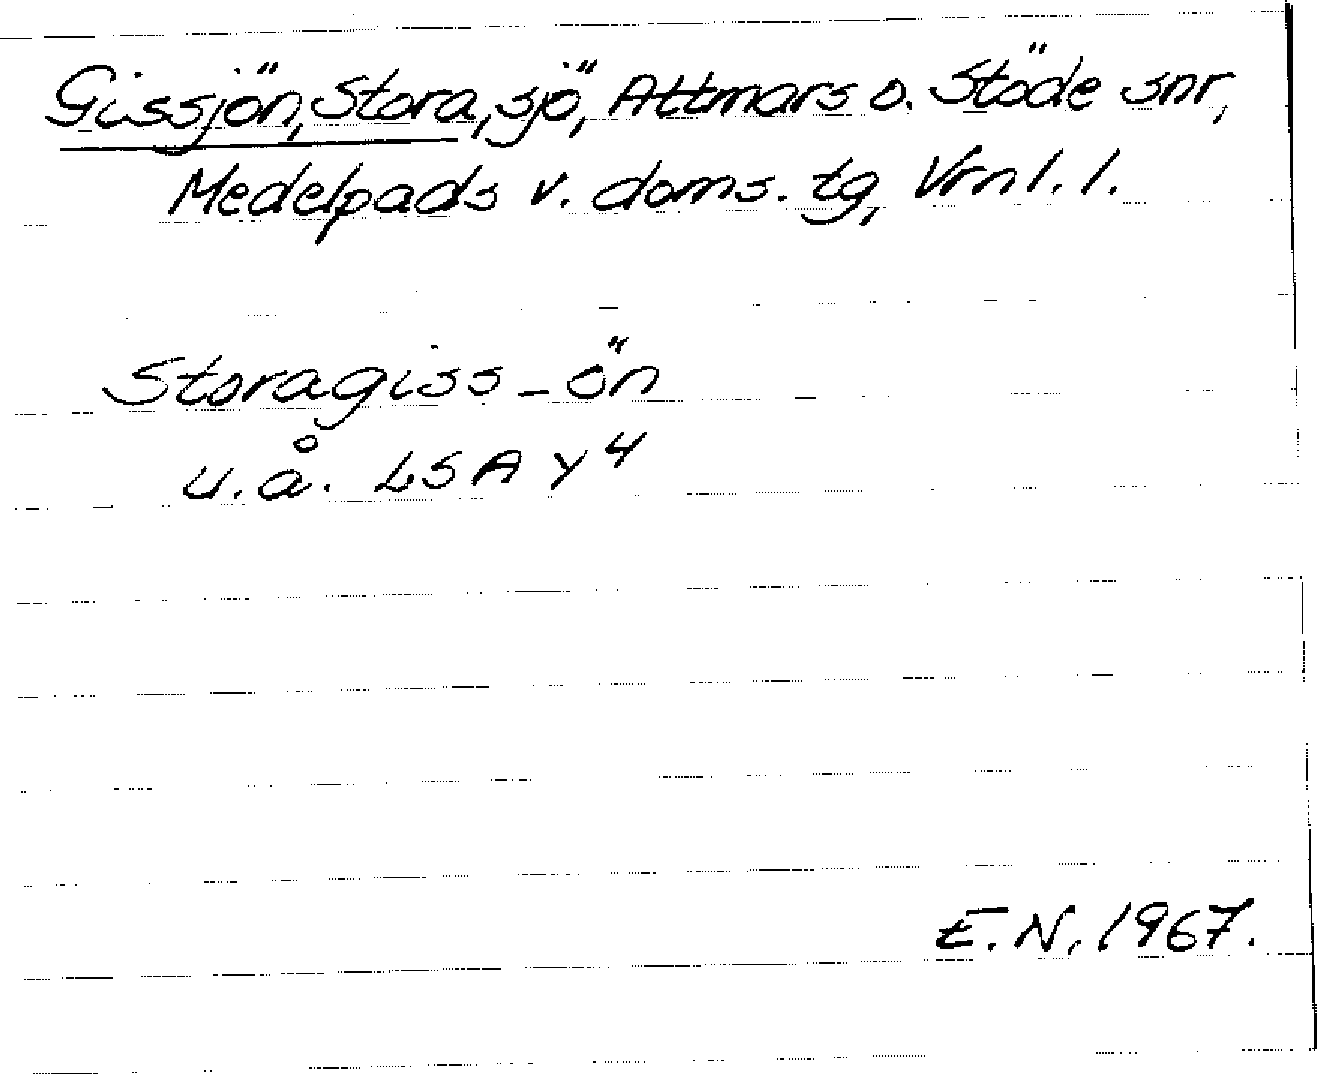 Gissjön, Stora, sjö, Attmars o. Stöde snr,
Medelpads v. doms. tg, Vrnl. l.
Storagiss-ön
u.å. LSA Y 4
E.N. 1967.